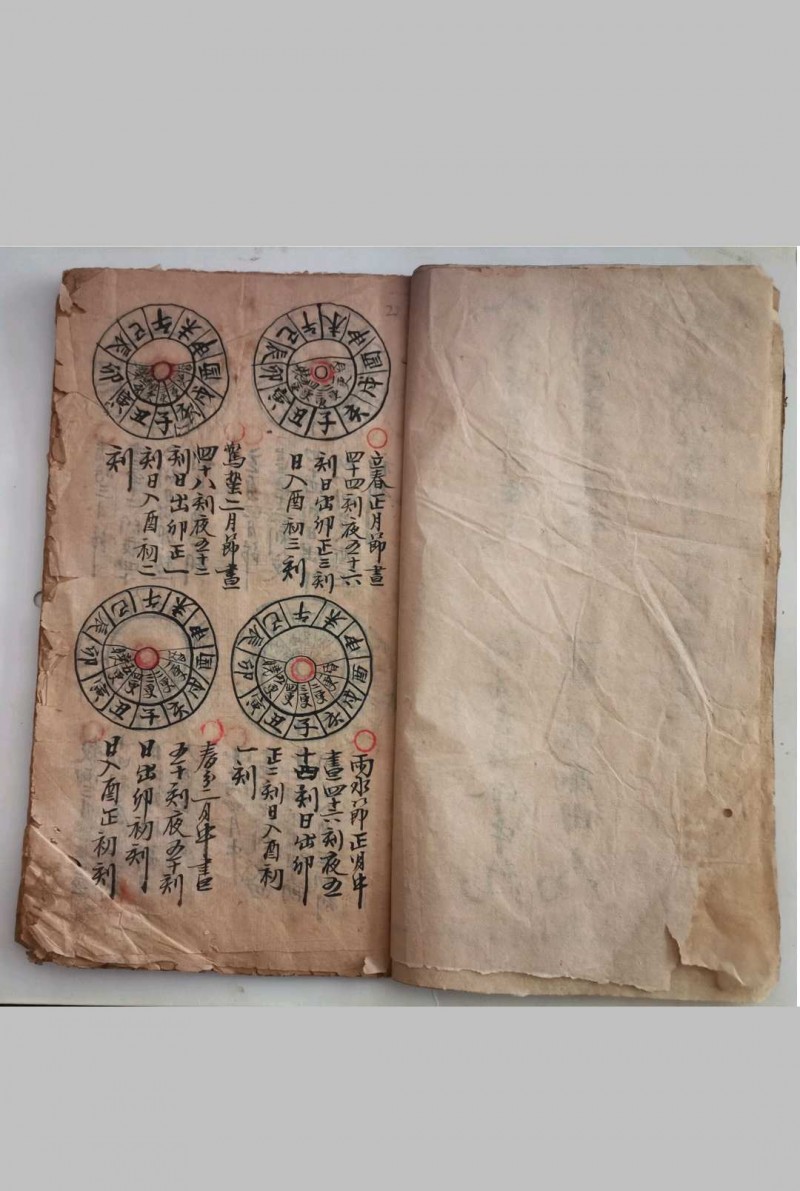 子丑寅卯辰巳午未申酉戌亥
立春正月節晝
四十四刻夜五十六
刻日出卯正三刻
日入酉初三刻
子丑寅卯辰巳午未申酉戌亥
驚蟄二月節晝
四十八刻夜五十二
刻日出卯正一
刻日入酉初二
刻
子丑寅卯辰巳午未申酉戌亥
雨水節正月中
晝四十六刻夜五
十四刻日出卯
正二刻日入酉初
一刻
子丑寅卯辰巳午未申酉戌亥
春分二月中晝
五十刻夜五十刻
日出卯初刻
日入酉正初刻